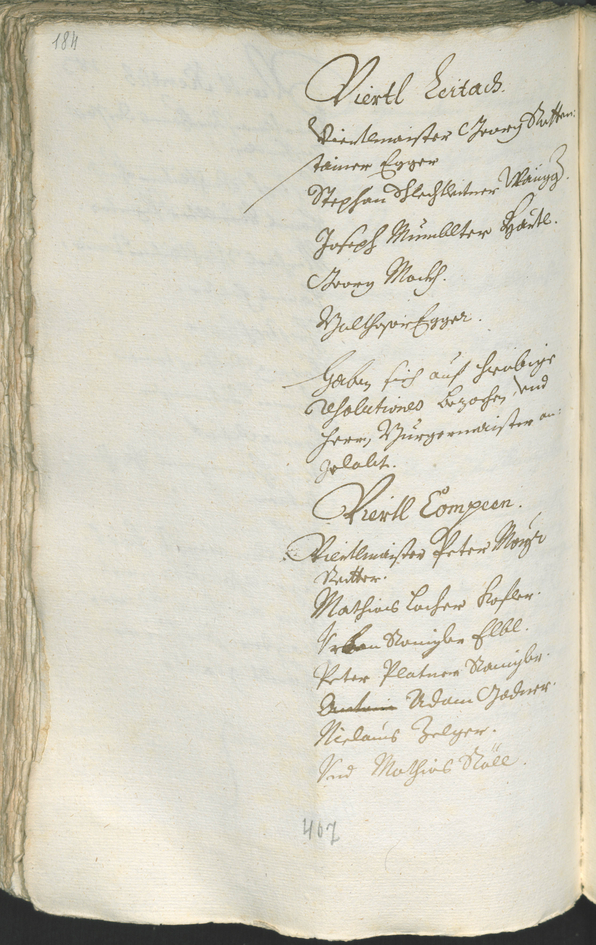 184
Viertl Leitach.
Viertlmaister Georg Ratten:
stainer Egger
Stephan Schlechtleitner Wangg.
Joseph Mumblter Härtl.
Georg Mockh.
Balthasar Egger.
haben sich auf hieobige
resolutiones bezochen, vnd
Herrn Burgermaister an:
gelobt.
Viertl Campeen.
Viertlmaister Peter Mayr
Reitter.
Mathias Locher Kofler.
Vrban Ranigler Elbl.
Peter Platner Ranigler.
Adam Gädner.
Niclaus Zelger.
Vnd Mathias Röll.
407